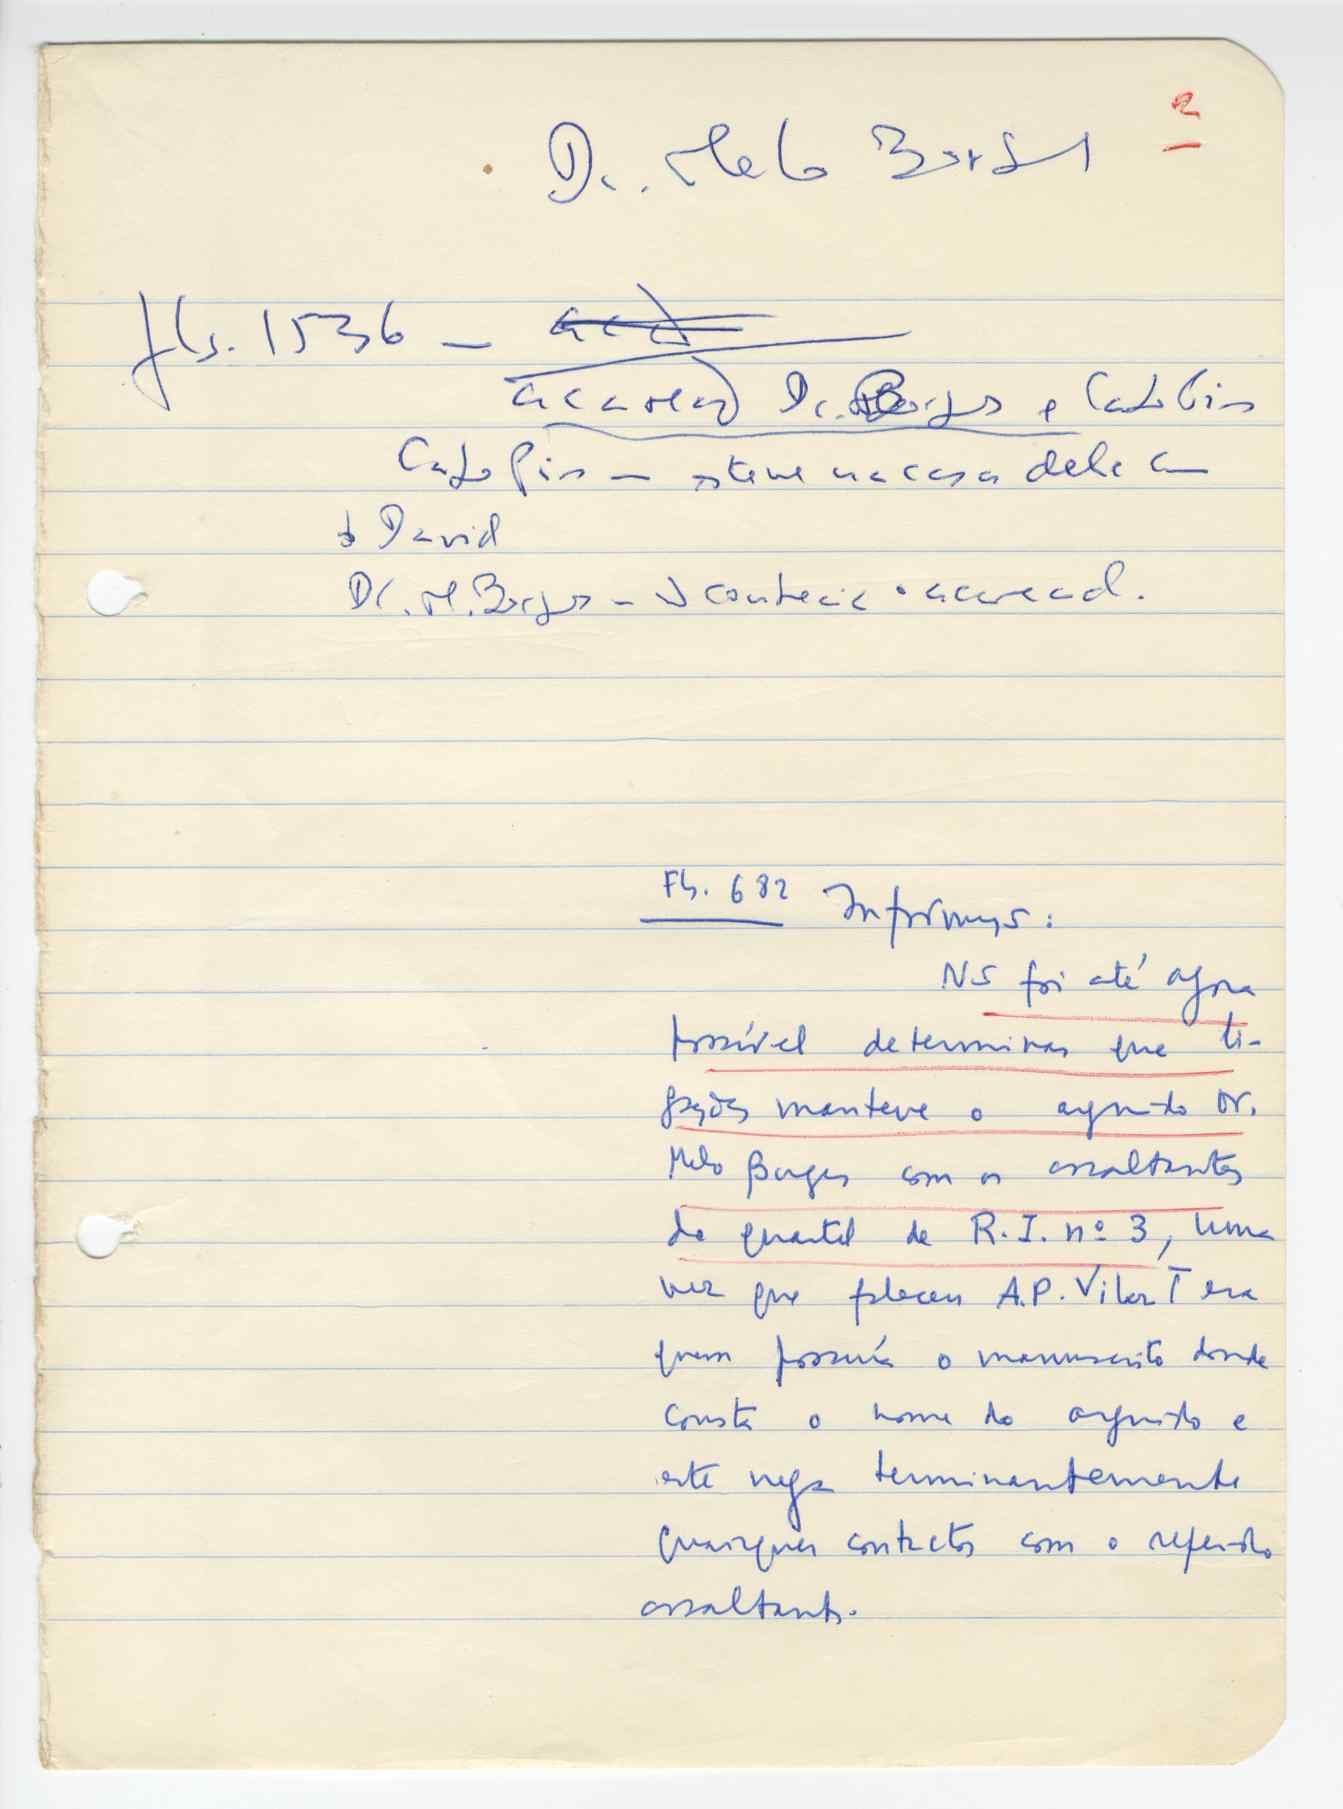 2
Dr. Melo Borges
fls. 1536 –
acareaç Dr. Borges e Catolino
– esteve na casa dele
David
Dr. M. Borges – acaread.
Fls. 682 Informaç:
foi até agora
possível determinar que li-
gações manteve o arguido Dr.
Melo Borges com os assaltantes
do quartel de R.I. nº 3, uma
vez que faleceu A.P. Vilar era
quem possuía o manuscrito donde
consta o nome do arguido e
este nega terminantemente
quaisquer contactos com o referido
assaltante.